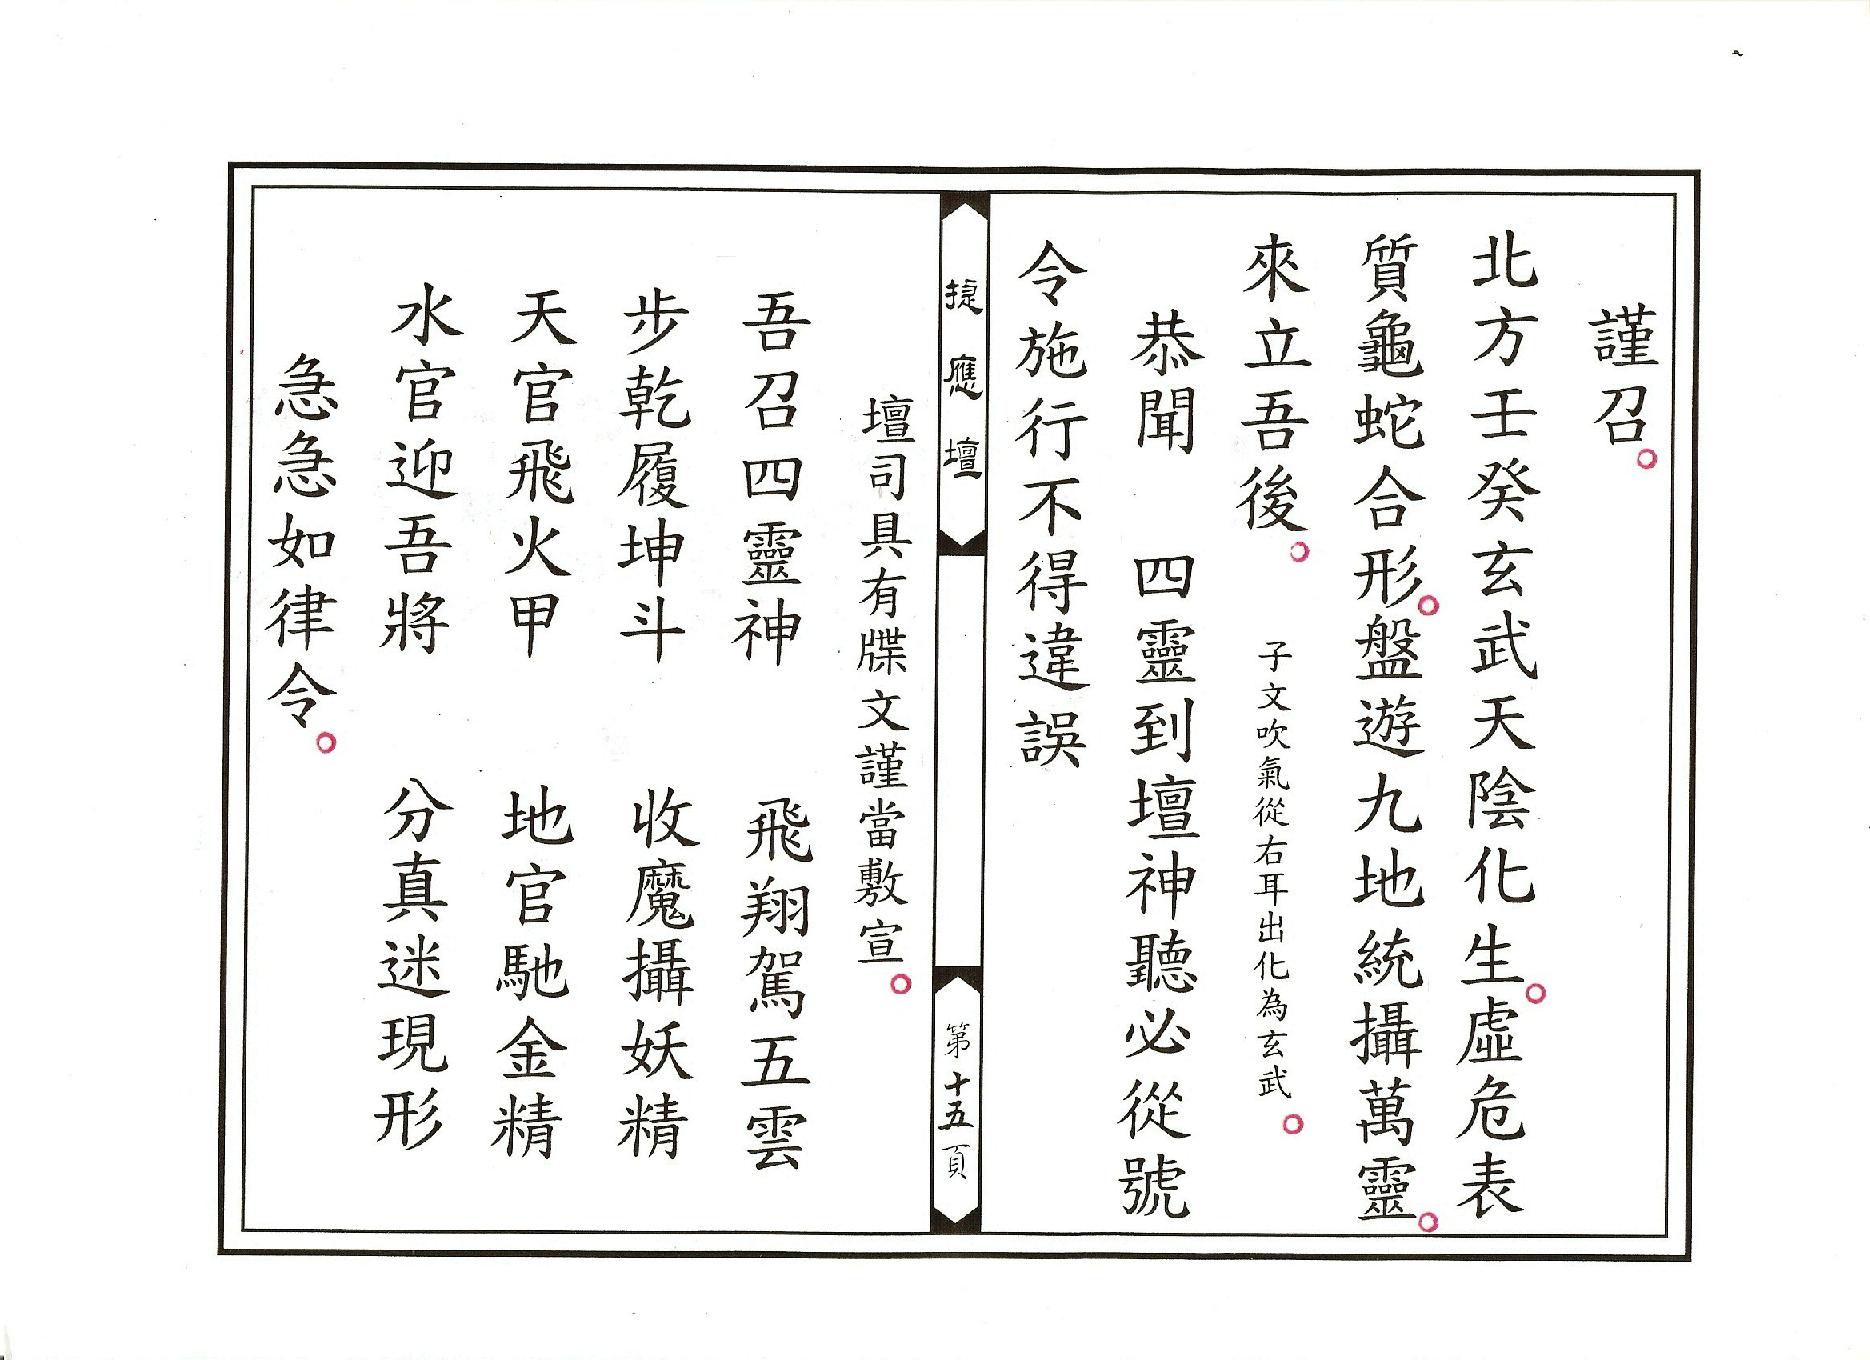 謹召。
北方壬癸玄武天陰化生。虛危表
質龜蛇合形。盤遊九地統攝萬靈。
來立吾後。 子文吹氣從右耳出化為玄武。
恭聞 四靈到壇神聽必從號
令施行不得違誤
捷應壇
第十五頁
壇司具有牒文謹當敷宣。
吾召四靈神 飛翔駕五雲
步乾履坤斗 收魔攝妖精
天官飛火甲 地官馳金精
水官迎吾將 分真迷現形
急急如律令。